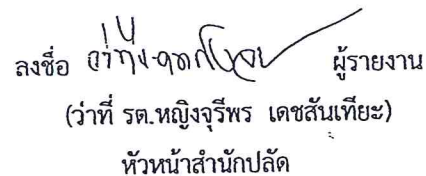 ลงชื่อ ว่าที่ ผู้รายงาน
(ว่าที่ รต.หญิงจุรีพร เดชสันเทียะ)
หัวหน้าสำนักปลัด